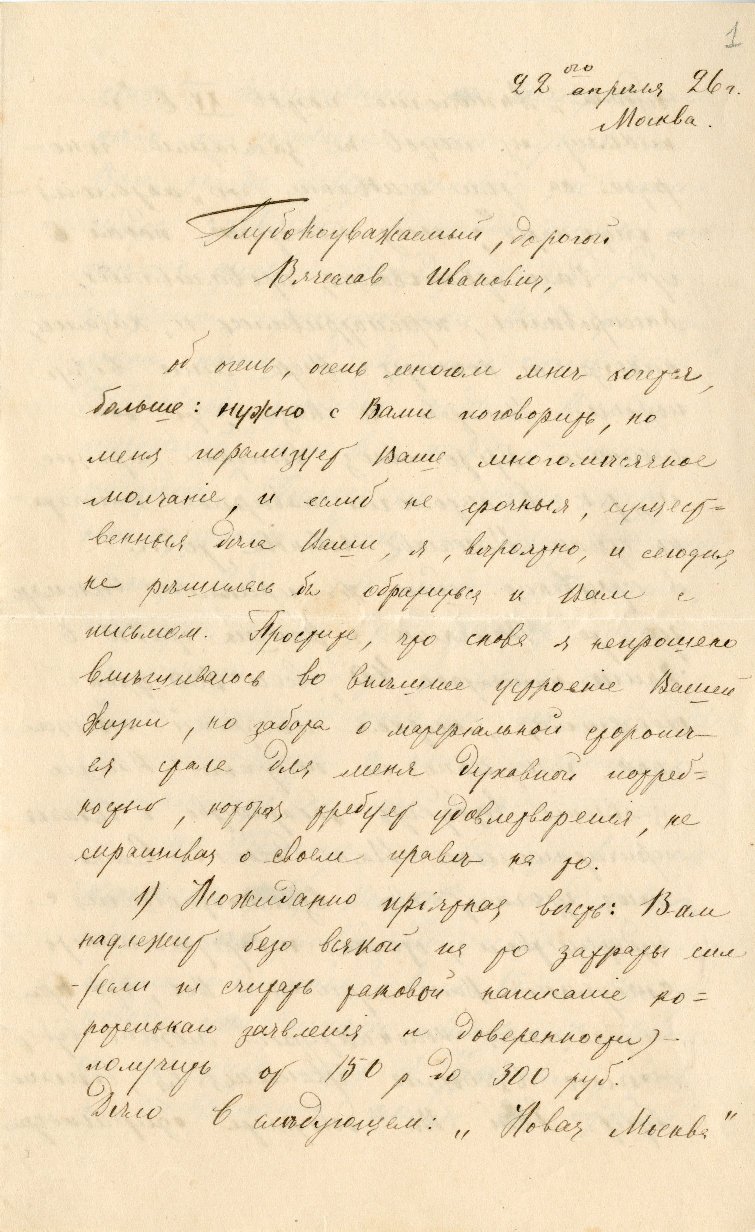 1
22ого апреля 26 г.
Москва.
Глубокоуважаемый, дорогой
Вячеслав Иванович,
об очень, очень многом мнѣ хочется,
больше: нужно с Вами поговорить, но
меня парализует Ваше многомѣсячное
молчанiе, и еслиб не срочныя, сущест=
венныя дѣла Ваши, я, вѣроятно, и сегодня
не рѣшилась бы обратиться к Вам с
письмом. Простите, что снова я непрошено
вмѣшиваюсь во внѣшнее устроенiе Вашей
жизни, но забота о матерiальной сторонѣ
ея стала для меня духовной потреб=
ностью, которая требует удовлетворенiя, не
спрашивая о своем правѣ на то.
1) Неожиданно прiятная вѣсть: Вам
надлежит безо всякой на то затраты сил
– (если не считать таковой написанiе ко=
ротенькаго заявленiя и доверенности) –
получить от 150 р до 300 руб.
Дѣло в слѣдующем: „Новая Москва"